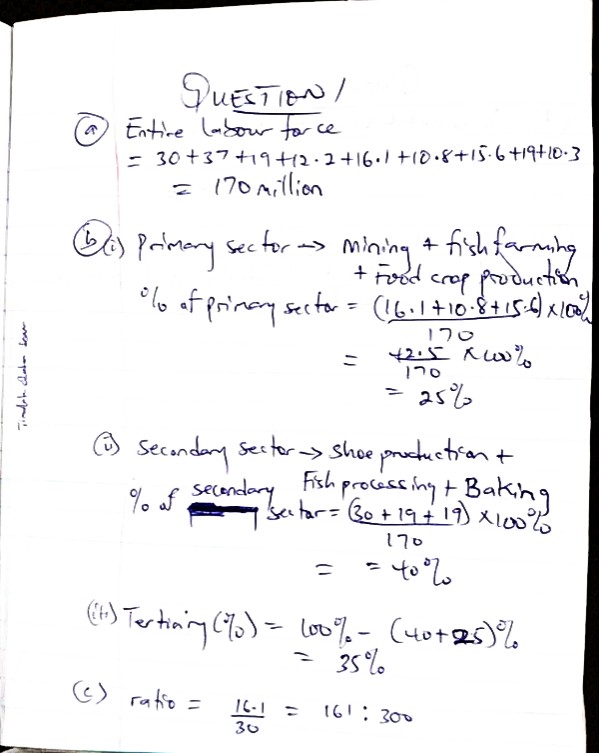 QUESTION 1
(a) Entire labour force
= 30+37+19+12.2+16.1+10.8+15.6+19+10.3
= 170 million
(b)(i) Primary sector → Mining + fish farming
+ Food crop production
% of primary sector = (16.1+10.8+15.6) × 100%
170
= 42.5 × 100%
170
= 25%
(ii) Secondary sector → Shoe production +
Fish processing + Baking
% of secondary sector = (30+19+19) × 100%
170
= = 40%
(iii) Tertiary (%) = 100% - (40+25)%
= 35%
(c) ratio = 16.1 = 161 : 300
30